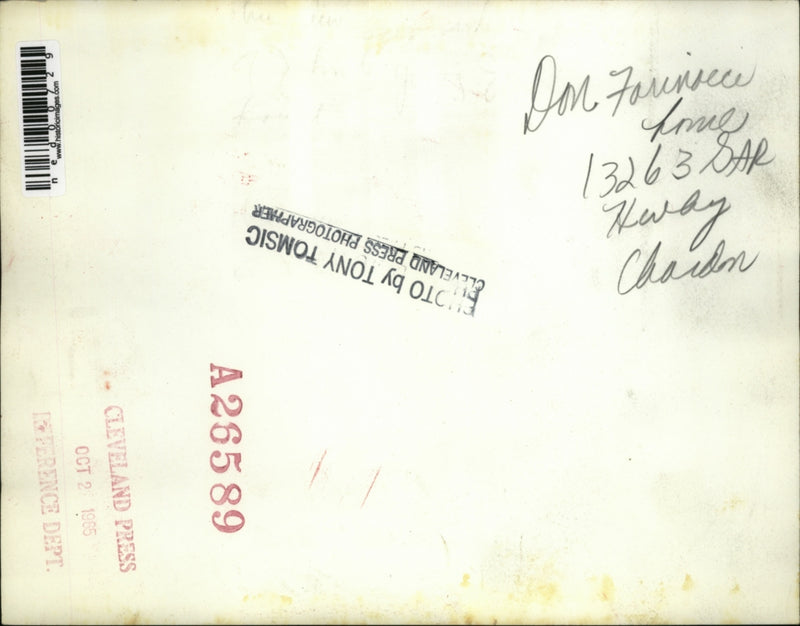 Don Farinacci
home
13263 GAR
Hwdy
Chardon
PHOTO by TONY TOMSIC
CLEVELAND PRESS PHOTOGRAPHER
A26589
CLEVELAND PRESS
OCT 2 1965
REFERENCE DEPT.
ned00729
www.historicimages.com